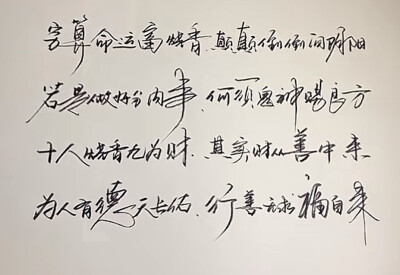 穷算命运富烧香，颠颠倒倒问阴阳
若是做好分内事，何须鬼神赐良方
十人烧香九为财，其实财从善中来
为人有德天长佑，行善无求福自来